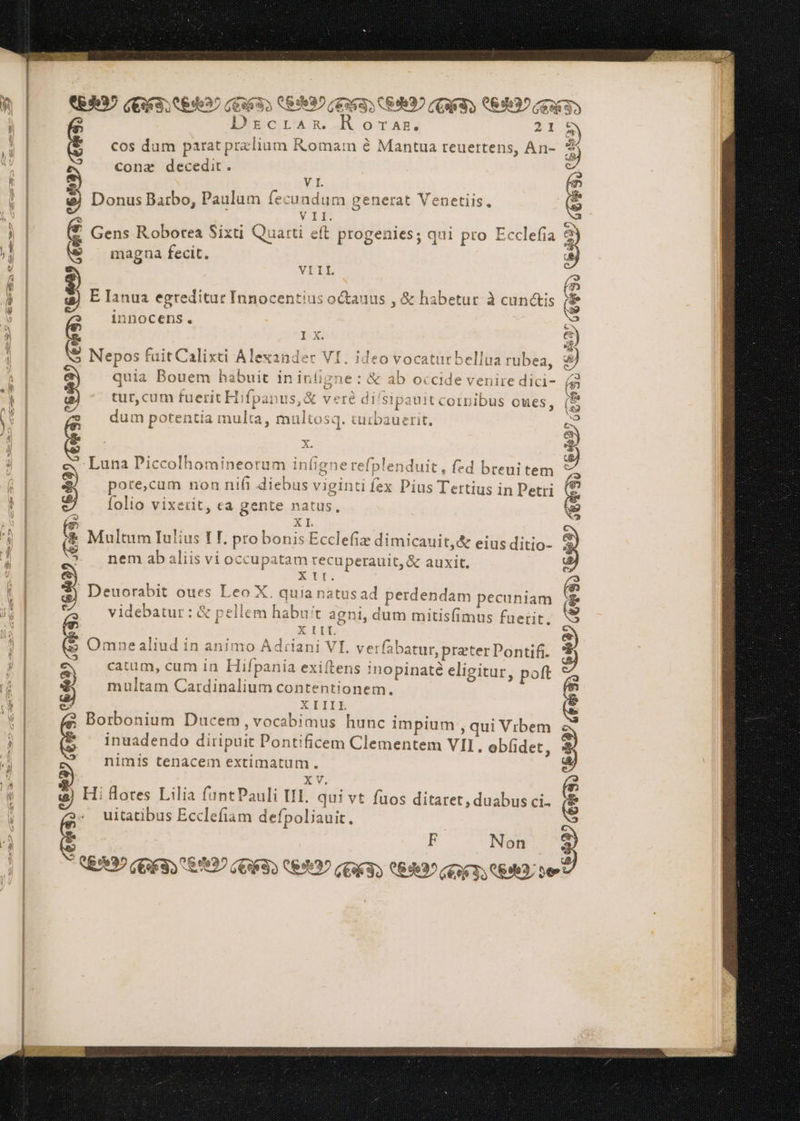 DECLAR. ROTAE. 21
cos dum parat prælium Romam è Mantua reuertens, An-
conæ decedit.
VI.
Donus Barbo, Paulum ſecundum generat Venetiis.
VII.
Gens Roborea Sixti Quarti eſt progenies; qui pro Eccleſia
magna fecit.
VIII.
E Ianua egreditur Innocentius octauus, & habetur à cunctis
innocens.
IX.
Nepos fuit Calixti Alexander VI. ideo vocatur bellua rubea,
quia Bouem habuit in inſigne: & ab occide venire dici-
tur, cum fuerit Hiſpanus, & verè diſsipauit cornibus oues,
dum potentia multa, multosq. turbauerit.
X.
Luna Piccolhomineorum inſigne reſplenduit, ſed breui tem
pore, cum non niſi diebus viginti ſex Pius Tertius in Petri
ſolio vixerit, ea gente natus.
XI.
Multum Iulius II. pro bonis Eccleſiæ dimicauit, & eius ditio-
nem ab aliis vi occupatam recuperauit, & auxit.
XII.
Deuorabit oues Leo X. quia natus ad perdendam pecuniam
videbatur: & pellem habuit agni, dum mitisſimus fuerit.
XIII.
Omne aliud in animo Adriani VI. verſabatur, præter Pontifi-
catum, cum in Hiſpania exiſtens inopinatè eligitur, poſt
multam Cardinalium contentionem.
XIIII.
Borbonium Ducem, vocabimus hunc impium, qui Vrbem
inuadendo diripuit Pontificem Clementem VII. obſidet,
nimis tenacem extimatum.
XV.
Hi flores Lilia ſunt Pauli III. qui vt ſuos ditaret, duabus ci-
uitatibus Eccleſiam deſpoliauit.
F Non